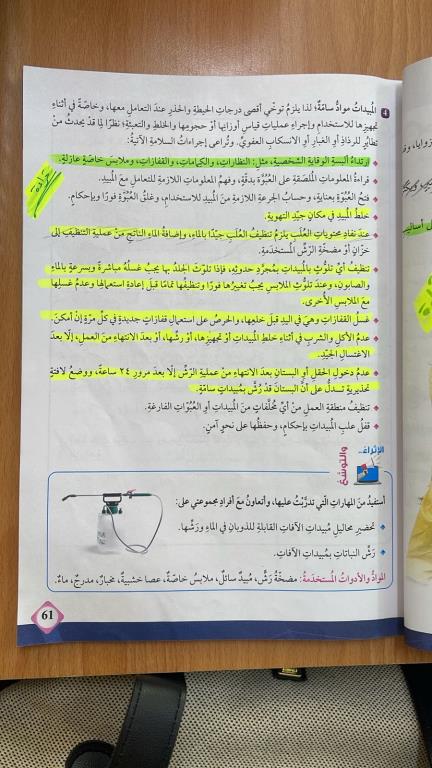 4 المُبيداتُ موادُّ سامّةٌ؛ لذا يلزمُ توخّي أقصى درجاتِ الحيطةِ والحذرِ عندَ التعاملِ معها، وخاصّةً في أثناءِ
تجهيزِها للاستخدامِ وإجراءِ عملياتِ قياسِ أوزانِها أوْ حجومِها والخلطِ والتعبئةِ؛ نظرًا لِما قدْ يحدثُ منْ
تطايُرٍ للرذاذِ أوِ الغبارِ أوِ الانسكابِ العفويِّ. وتُراعى إجراءاتُ السلامةِ الآتيةُ:
ارتداءُ ألبسةِ الوقايةِ الشخصيةِ، مثلِ: النظاراتِ، والكمّاماتِ، والقفازاتِ، وملابسَ خاصّةٍ عازلةٍ.
قراءةُ المعلوماتِ المُلصَقةِ على العُبُوَّةِ بدقّةٍ، وفهمُ المعلوماتِ اللازمةِ للتعاملِ معَ المُبيدِ.
فتحُ العُبُوَّةِ بعنايةٍ، وحسابُ الجرعةِ اللازمةِ منَ المُبيدِ للاستخدامِ، وغلقُ العُبُوَّةِ فورًا وبإحكامٍ.
خلطُ المُبيدِ في مكانٍ جيّدِ التهويةِ.
عندَ نفادِ محتوياتِ العُلَبِ يلزمُ تنظيفُ العُلَبِ جيّدًا بالماءِ، وإضافةُ الماءِ الناتجِ منْ عمليةِ التنظيفِ إلى
خزّانِ أوْ مضخّةِ الرشِّ المُستخدَمةِ.
تنظيفُ أيِّ تلوُّثٍ بالمُبيداتِ بمُجرَّدِ حدوثِهِ، فإذا تلوّثَ الجلدُ بها يجبُ غسلُهُ مباشرةً وبسرعةٍ بالماءِ
والصابونِ، وعندَ تلوُّثِ الملابسِ يجبُ تغييرُها فورًا وتنظيفُها تمامًا قبلَ إعادةِ استعمالِها وعدمُ غسلِها
معَ الملابسِ الأُخرى.
غسلُ القفازاتِ وهيَ في اليدِ قبلَ خلعِها، والحرصُ على استعمالِ قفازاتٍ جديدةٍ في كلِّ مرّةٍ إنْ أمكنَ.
عدمُ الأكلِ والشربِ في أثناءِ خلطِ المُبيداتِ أوْ تجهيزِها، أوْ رشِّها، أوْ بعدَ الانتهاءِ منَ العملِ، إلّا بعدَ
الاغتسالِ الجيّدِ.
عدمُ دخولِ الحقلِ أوِ البستانِ بعدَ الانتهاءِ منْ عمليةِ الرشِّ إلّا بعدَ مرورِ ٢٤ ساعةً، ووضعُ لافتةٍ
تحذيريةٍ تدلُّ على أنَّ البستانَ قدْ رُشَّ بمُبيداتٍ سامّةٍ.
تنظيفُ منطقةِ العملِ منْ أيِّ مُخلَّفاتٍ منَ المُبيداتِ أوِ العُبُوّاتِ الفارغةِ.
قفلُ علبِ المُبيداتِ بإحكامٍ، وحفظُها على نحوٍ آمنٍ.
الإثراءُ..
والتوسُّعُ
أستفيدُ منَ المهاراتِ الّتي تدرَّبْتُ عليها، وأتعاونُ معَ أفرادِ مجموعتي على:
تحضيرِ محاليلِ مُبيداتِ الآفاتِ القابلةِ للذوبانِ في الماءِ ورَشِّها.
رَشِّ النباتاتِ بمُبيداتِ الآفاتِ.
الموادُّ والأدواتُ المُستخدَمةُ: مضخّةُ رَشٍّ، مُبيدٌ سائلٌ، ملابسُ خاصّةٌ، عصا خشبيةٌ، مخبارٌ، مدرجٌ، ماءٌ.
61